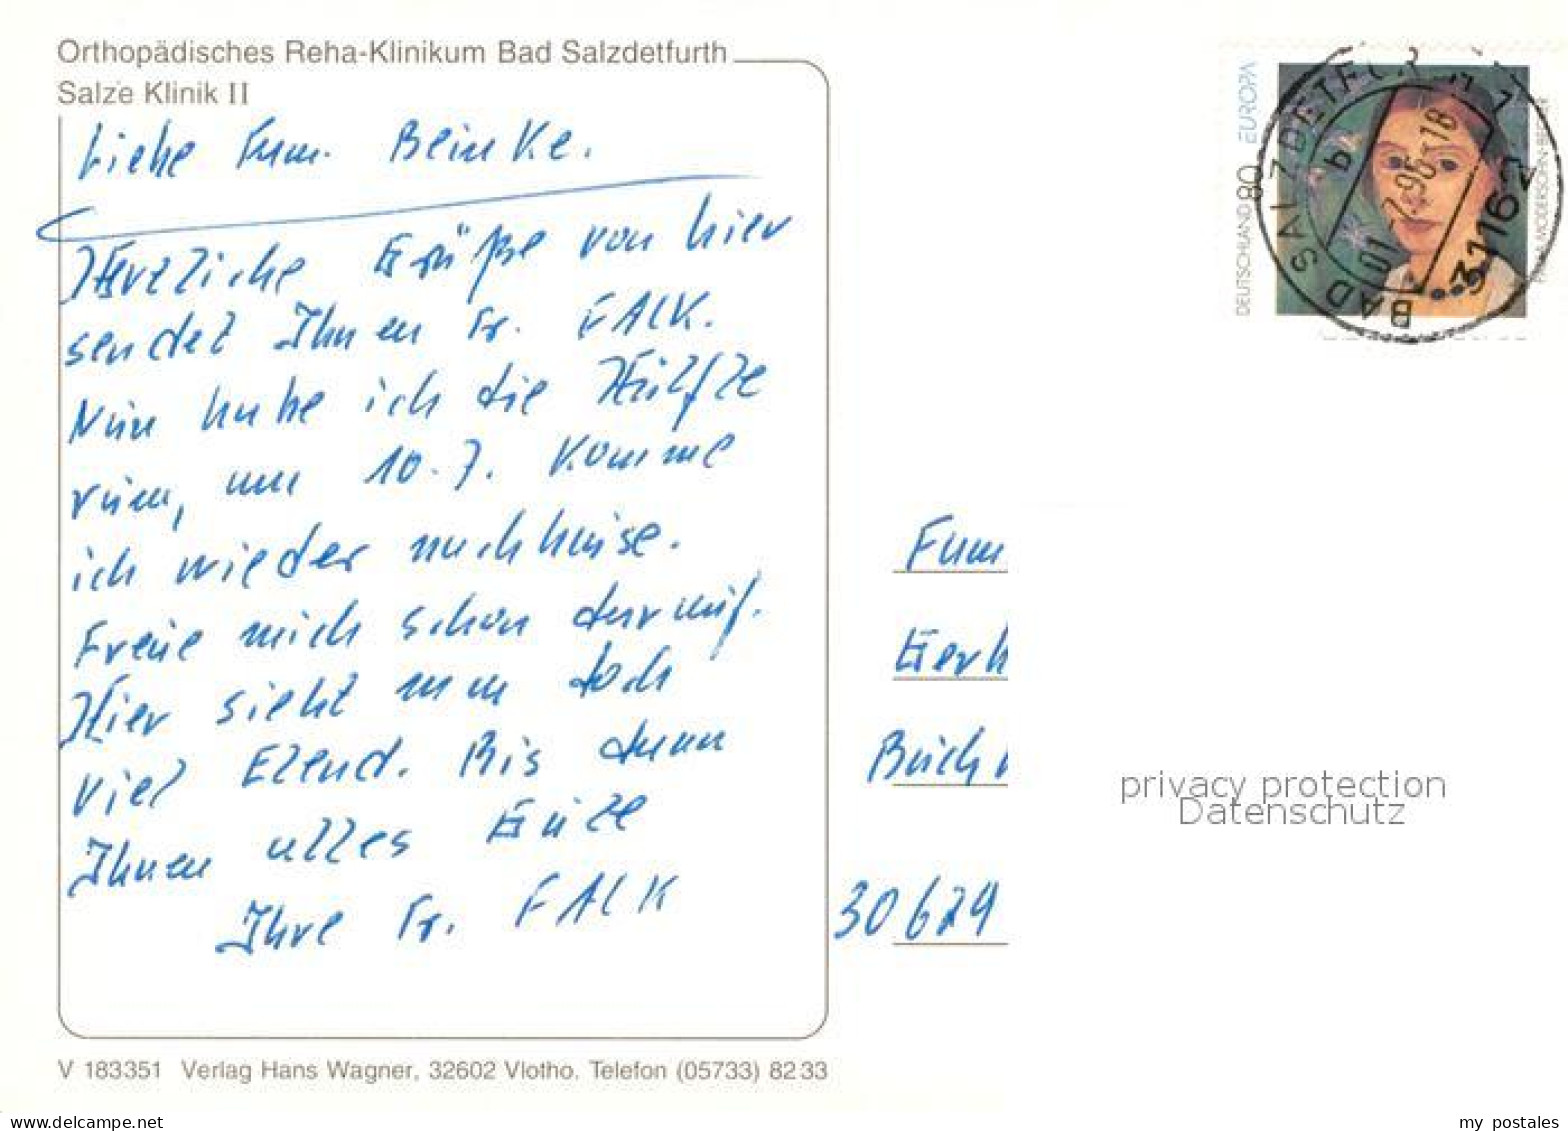 Orthopädisches Reha-Klinikum Bad Salzdetfurth
Salze Klinik II
Liebe Fam. Beinke.
Herzliche Grüße von hier
sendet Ihnen Fr. FALK.
Nun habe ich die Hälfte
rum, am 10.7. komme
ich wieder nachhause.
Freue mich schon darauf.
Hier sieht man doch
viel Elend. Bis dann
Ihnen alles Gute
Ihre Fr. FALK
V 183351 Verlag Hans Wagner, 32602 Vlotho. Telefon (05733) 8233
DEUTSCHLAND 80 EUROPA
BAD SALZDETFURTH
31162
b
01.7.96-18
Fam
Gerh
30629
privacy protection
Datenschutz
www.delcampe.net
my_postales